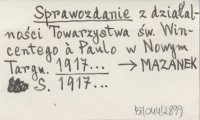 Sprawozdanie z działal-
ności Towarzystwa św. Win-
centego à Paulo w Nowym
Targu. 1917... → MAZANEK
S. 1917...